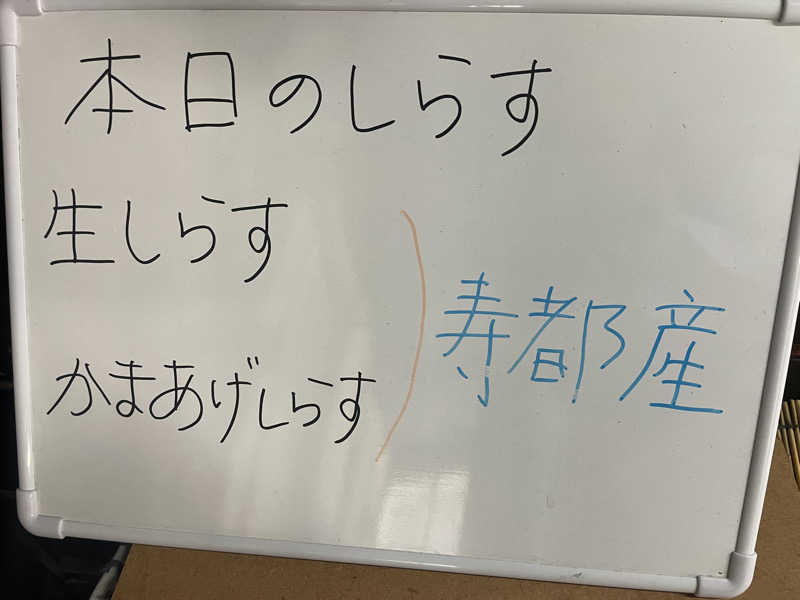 本日のしらす
生しらす
かまあげしらす
寿都産